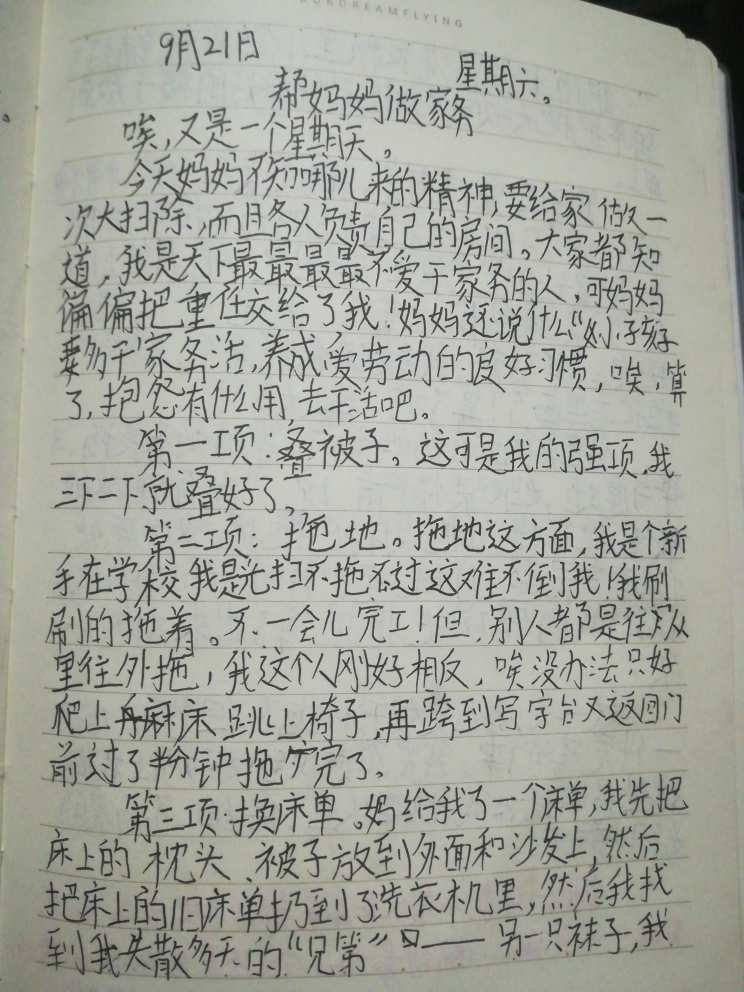 DREAMFLYING
9月21日
星期六。
帮妈妈做家务
唉,又是一个星期天。
今天妈妈不知哪儿来的精神,要给家做一
次大扫除,而且各人负责自己的房间。大家都知
道,我是天下最最最最不爱干家务的人,可妈妈
偏偏把重任交给了我!妈妈还说什么“小孩子
要多干家务活,养成爱劳动的良好习惯,唉,算
了,抱怨有什么用,去干活吧。
第一项:叠被子。这可是我的强项,我
三下二下就叠好了。
第二项:拖地。拖地这方面,我是个新
手在学校我是光扫不拖不过这难不倒我!我刷
刷的拖着。不一会儿完工!但,别人都是往从
里往外拖,我这个人刚好相反,唉没办法只好
爬上床跳上椅子,再跨到写字台又返回门
前过了半分钟拖完了。
第三项:换床单。妈给我了一个床单,我先把
床上的枕头、被子放到外面和沙发上,然后
把床上的旧床单扔到了洗衣机里,然后我找
到我失散多天的“兄弟”——另一只袜子,我